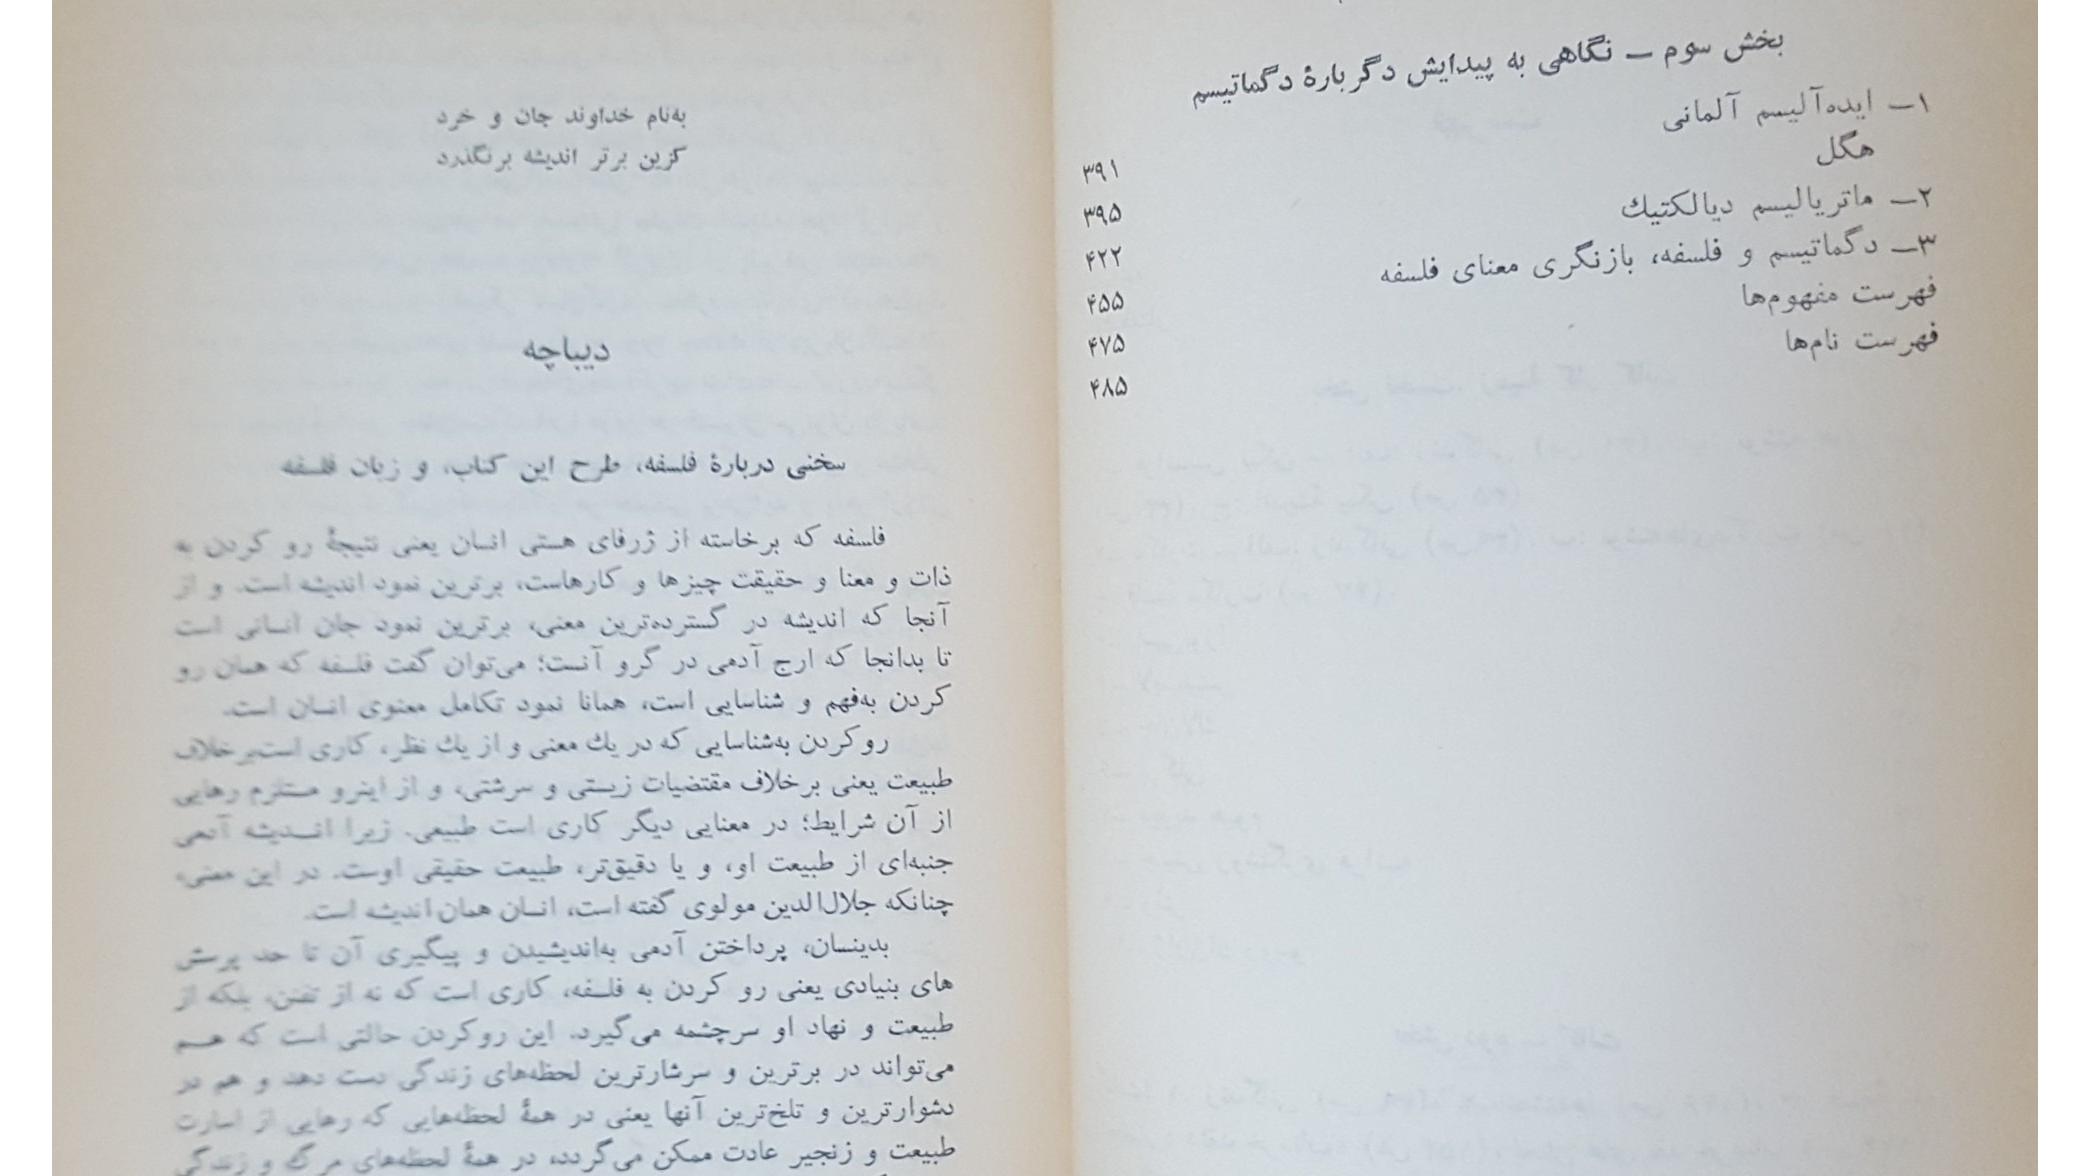 بخش سوم — نگاهی به پیدایش دگربارهٔ دگماتیسم
۱— ایده‌آلیسم آلمانی ۳۹۱
هگل ۳۹۵
۲— ماتریالیسم دیالکتیك ۴۲۲
۳— دگماتیسم و فلسفه، بازنگری معنای فلسفه ۴۵۵
فهرست مفهوم‌ها ۴۷۵
فهرست نام‌ها ۴۸۵
به‌نام خداوند جان و خرد
کزین برتر اندیشه برنگذرد
دیباچه
سخنی دربارهٔ فلسفه، طرح این کتاب، و زبان فلسفه
فلسفه که برخاسته از ژرفای هستی انسان یعنی نتیجهٔ رو کردن به
ذات و معنا و حقیقت چیزها و کارهاست، برترین نمود اندیشه است. و از
آنجا که اندیشه در گسترده‌ترین معنی، برترین نمود جان انسانی است
تا بدانجا که ارج آدمی در گرو آنست؛ می‌توان گفت فلسفه که همان رو
کردن به‌فهم و شناسایی است، همانا نمود تکامل معنوی انسان است.
روکردن به‌شناسایی که در یك معنی و از یك نظر، کاری است‌برخلاف
طبیعت یعنی برخلاف مقتضیات زیستی و سرشتی، و از اینرو مستلزم رهایی
از آن شرایط؛ در معنایی دیگر کاری است طبیعی. زیرا اندیشه آدمی
جنبه‌ای از طبیعت او، و یا دقیق‌تر، طبیعت حقیقی اوست. در این معنی،
چنانکه جلال‌الدین مولوی گفته است، انسان همان اندیشه است.
بدینسان، پرداختن آدمی به‌اندیشیدن و پیگیری آن تا حد پرسش
های بنیادی یعنی رو کردن به فلسفه، کاری است که نه از تفنن، بلکه از
طبیعت و نهاد او سرچشمه می‌گیرد. این روکردن حالتی است که هم
می‌تواند در برترین و سرشارترین لحظه‌های زندگی دست دهد و هم در
دشوارترین و تلخ‌ترین آنها یعنی در همهٔ لحظه‌هایی که رهایی از اسارت
طبیعت و زنجیر عادت ممکن می‌گردد، در همهٔ لحظه‌های مرگ و زندگی